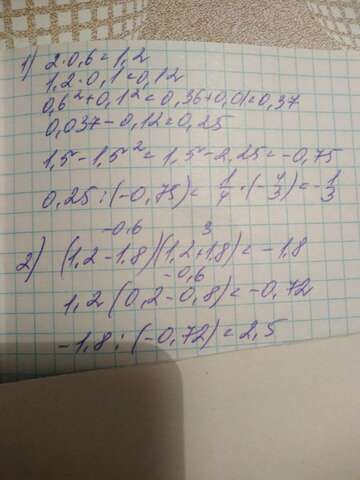 1) 2·0,6=1,2
1,2·0,1=0,12
0,6²+0,1²=0,36+0,01=0,37
0,037-0,12=0,25
1,5-1,5²=1,5-2,25=-0,75
0,25:(-0,75)=1/4·(-4/3)=-1/3
-0,6 3
2) (1,2-1,8)(1,2+1,8)=-1,8
-0,6
1,2(0,2-0,8)=-0,72
-1,8:(-0,72)=2,5